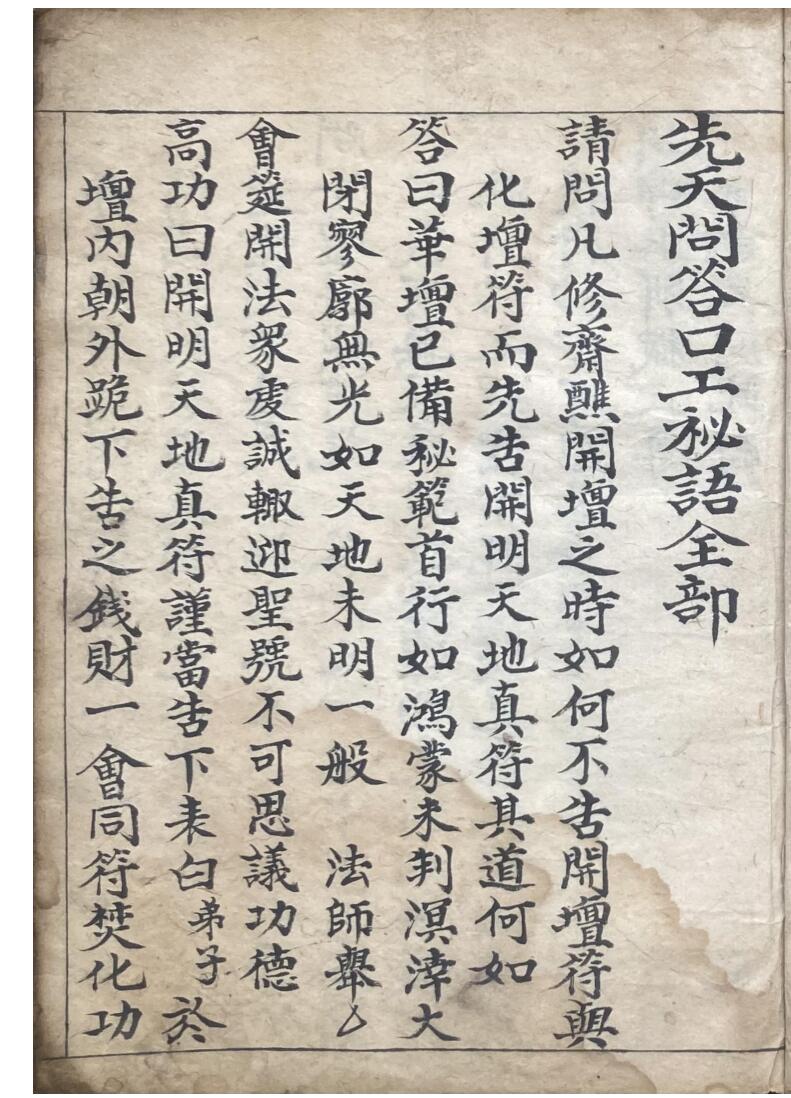 先天問答口工秘語全部
請問凡修齋醮開壇之時如何不告開壇符與
化壇符而先告開明天地真符其道何如
答曰華壇已備秘範首行如鴻蒙未判溟涬大
閉寥廓無光如天地未明一般 法師舉
會筵開法衆虔誠輙迎聖號不可思議功德
高功曰開明天地真符謹當告下表白弟子於
壇内朝外跪下告之錢財一會同符焚化功